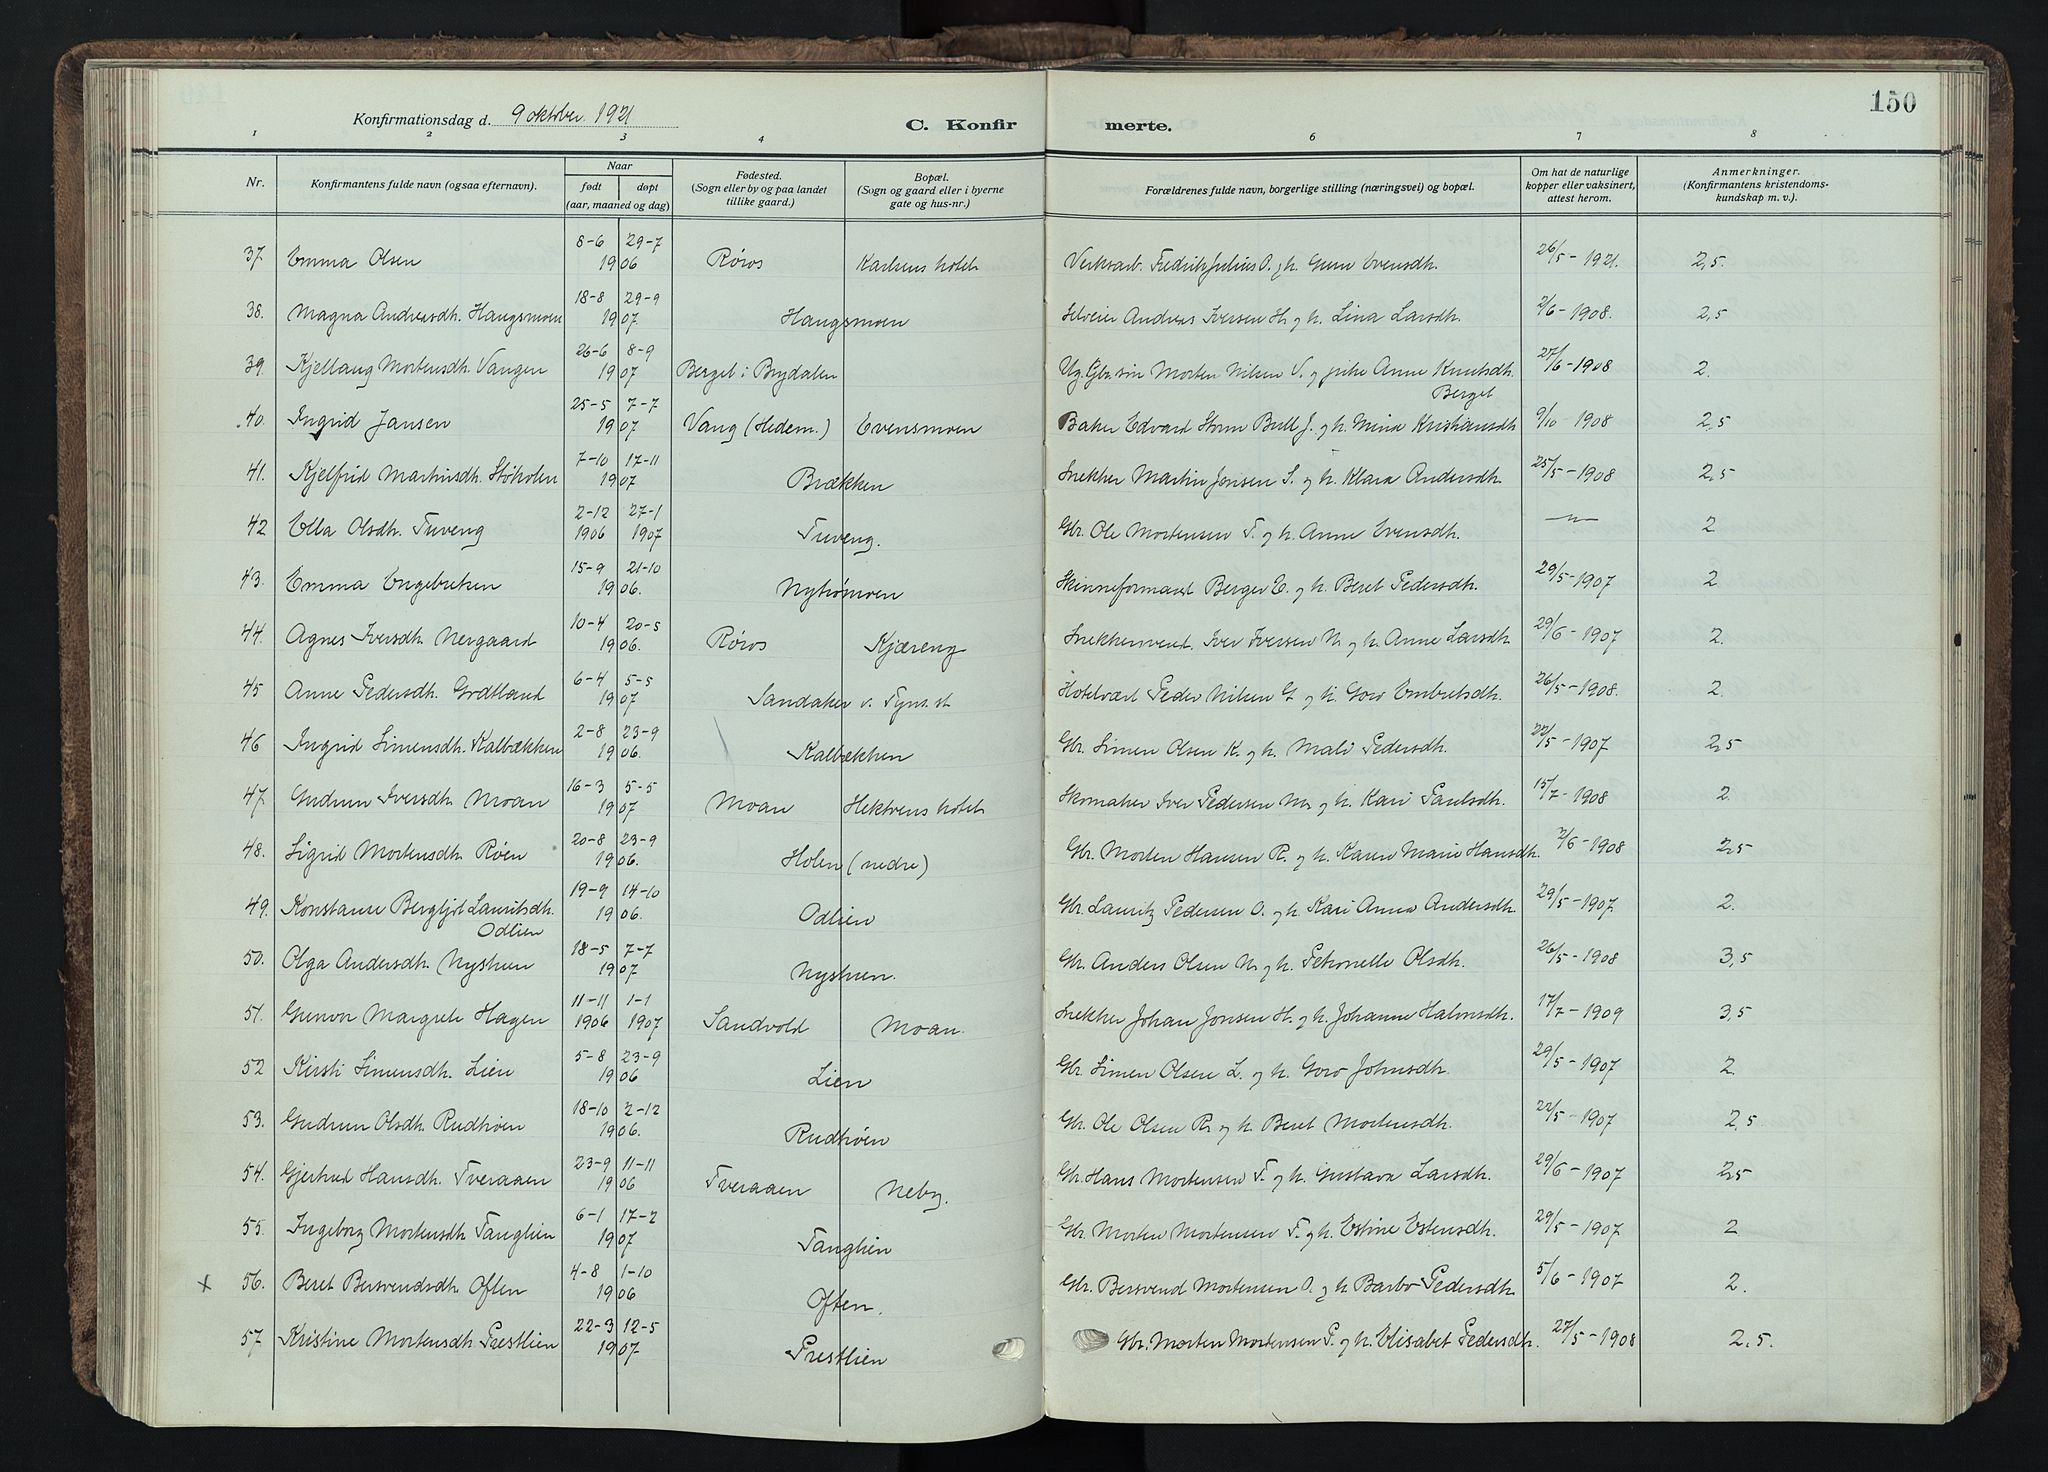 150
Konfirmationsdag d. 9 oktober 1921
C. Konfirmerte.
1 2 3 4 6 7 8
Nr.
Konfirmantens fulde navn (ogsaa efternavn).
Naar
født døpt
(aar, maaned og dag)
Fødested.
(Sogn eller by og paa landet
tillike gaard.)
Bopæl.
(Sogn og gaard eller i byerne
gate og hus-nr.)
Forældrenes fulde navn, borgerlige stilling (næringsvei) og bopæl.
Om hat de naturlige
kopper eller vaksinert,
attest herom.
Anmerkninger.
(Konfirmantens kristendoms-
kundskap m. v.).
37. Emma Olsen 8-6 29-7 1906 Røros Karlsens hotel Verksarb. Fredrik Julius O. og h. Gure Evensdh. 26/5-1921. 2,5.
38. Magna Andreasdh. Haugsmoen 18-8 29-9 1907 Haugsmoen Andreas Iversen H. og h. Lina Larsdh. 2/6-1908. 2,5
39. Kjellaug Mortensdh. Vangen 26-6 8-9 1907 Berget i Brydalen Ug. Gbr.søn Morten Nilsen V. og pike Anne Knutsdh. Berget 27/6-1908 2.
40. Ingrid Jansen 25-5 7-7 1907 Vang (Hedem.) Evensmoen Baker Edvard Storm Bull J. og h. Mina Kristiansdh 9/10 1908 2,5
41. Kjelfrid Martinsdh. Støholen 7-10 17-11 1907 Brækken Snekker Martin Jensen S. og h. Klara Andersdh. 25/5-1908 2,5
42 Ella Olsdh. Tuveng 2-12 1906 27-1 1907 Tuveng. Gbr. Ole Mortensen T. og h. Anne Evensdh. —"— 2
43. Emma Engebretsen 15-9 21-10 1906. Nytrømoen Skinneformand Berger E. og h. Beret Pedersdh. 29/5-1907 2
44. Agnes Iversdh. Nergaard 10-4 20-5 1906. Røros Kjæreng Snekkersvend. Iver Iversen N. og h. Anne Larsdh. 29/6-1907 2.
45 Anne Pedersdh. Grøtland 6-4 5-5 1907 Sandaker v. Tyns. st Hotelvært Peder Nilsen G. og h. Goro Embretsdh. 26/5-1908. 2.
46 Ingrid Simensdh. Kalbækken 2-8 23-9 1906. Kalbækken Gbr. Simen Olsen K. og h. Mali Pedersdh. 22/5-1907 2,5
47. Gudrun Iversdh. Moan 16-3 5-5 1907 Moan Hektoens hotel Skomaker Iver Pedersen M. og h. Kari Paulsdh. 15/7-1908 2.
48. Sigrid Mortensdh. Røen 20-8 23-9 1906. Holen (nedre) Gbr. Morten Hansen R. og h. Karen Marie Hansdh. 2/6-1908 2,5
49. Konstanse Bergljot Lauritsdh. Odlien 19-9 14-10 1906. Odlien Gbr. Lauritz Pedersen O. og h. Kari Anna Andersdh. 29/5-1907. 2.
50. Olga Andersdh. Nystuen 18-5 7-7 1907 Nystuen. Gbr. Anders Olsen N. og h. Petronelle Olsdh. 26/5-1908 3,5
51. Gunvor Margrete Hagen 11-11 1906 1-1 1907 Sandvold Moan. Snekker Johan Jonsen H. og h. Johanne Halvorsdh. 17/7-1909 3,5
52 Kirsti Simensdh. Lien 5-8 23-9 1906 Lien Gbr. Simen Olsen L. og h. Goro Johnsdh. 29/5-1907 2.
53. Gudrun Olsdh. Rudtrøen 18-10 2-12 1906. Rudtrøen Gbr. Ole Olsen R. og h. Beret Mortensdh. 22/5-1907 2,5.
54. Gjertrud Hansdh. Tveraaen 23-9 11-11 1906 Tveraaen Neby. Gbr. Hans Mortensen T. og h. Gustava Larsdh. 29/6-1907 2,5
55. Ingeborg Mortensdh. Tanglien 6-1 17-2 1907 Tanglien Gbr. Morten Mortensen T. og h. Estine Estensdh. 29/5-1907 2
x 56. Beret Bersvendsdh. Often 4-8 1-10 1906 Often. Gbr. Bersvend Mortensen O. og h. Barbo Pedersdh. 5/6-1907 2.
57. Kristine Mortensdh. Prestlien 22-3 12-5 1907 Prestlien Gbr. Morten Mortensen P. og h. Elisabet Pedersdh. 27/5-1908 2,5.